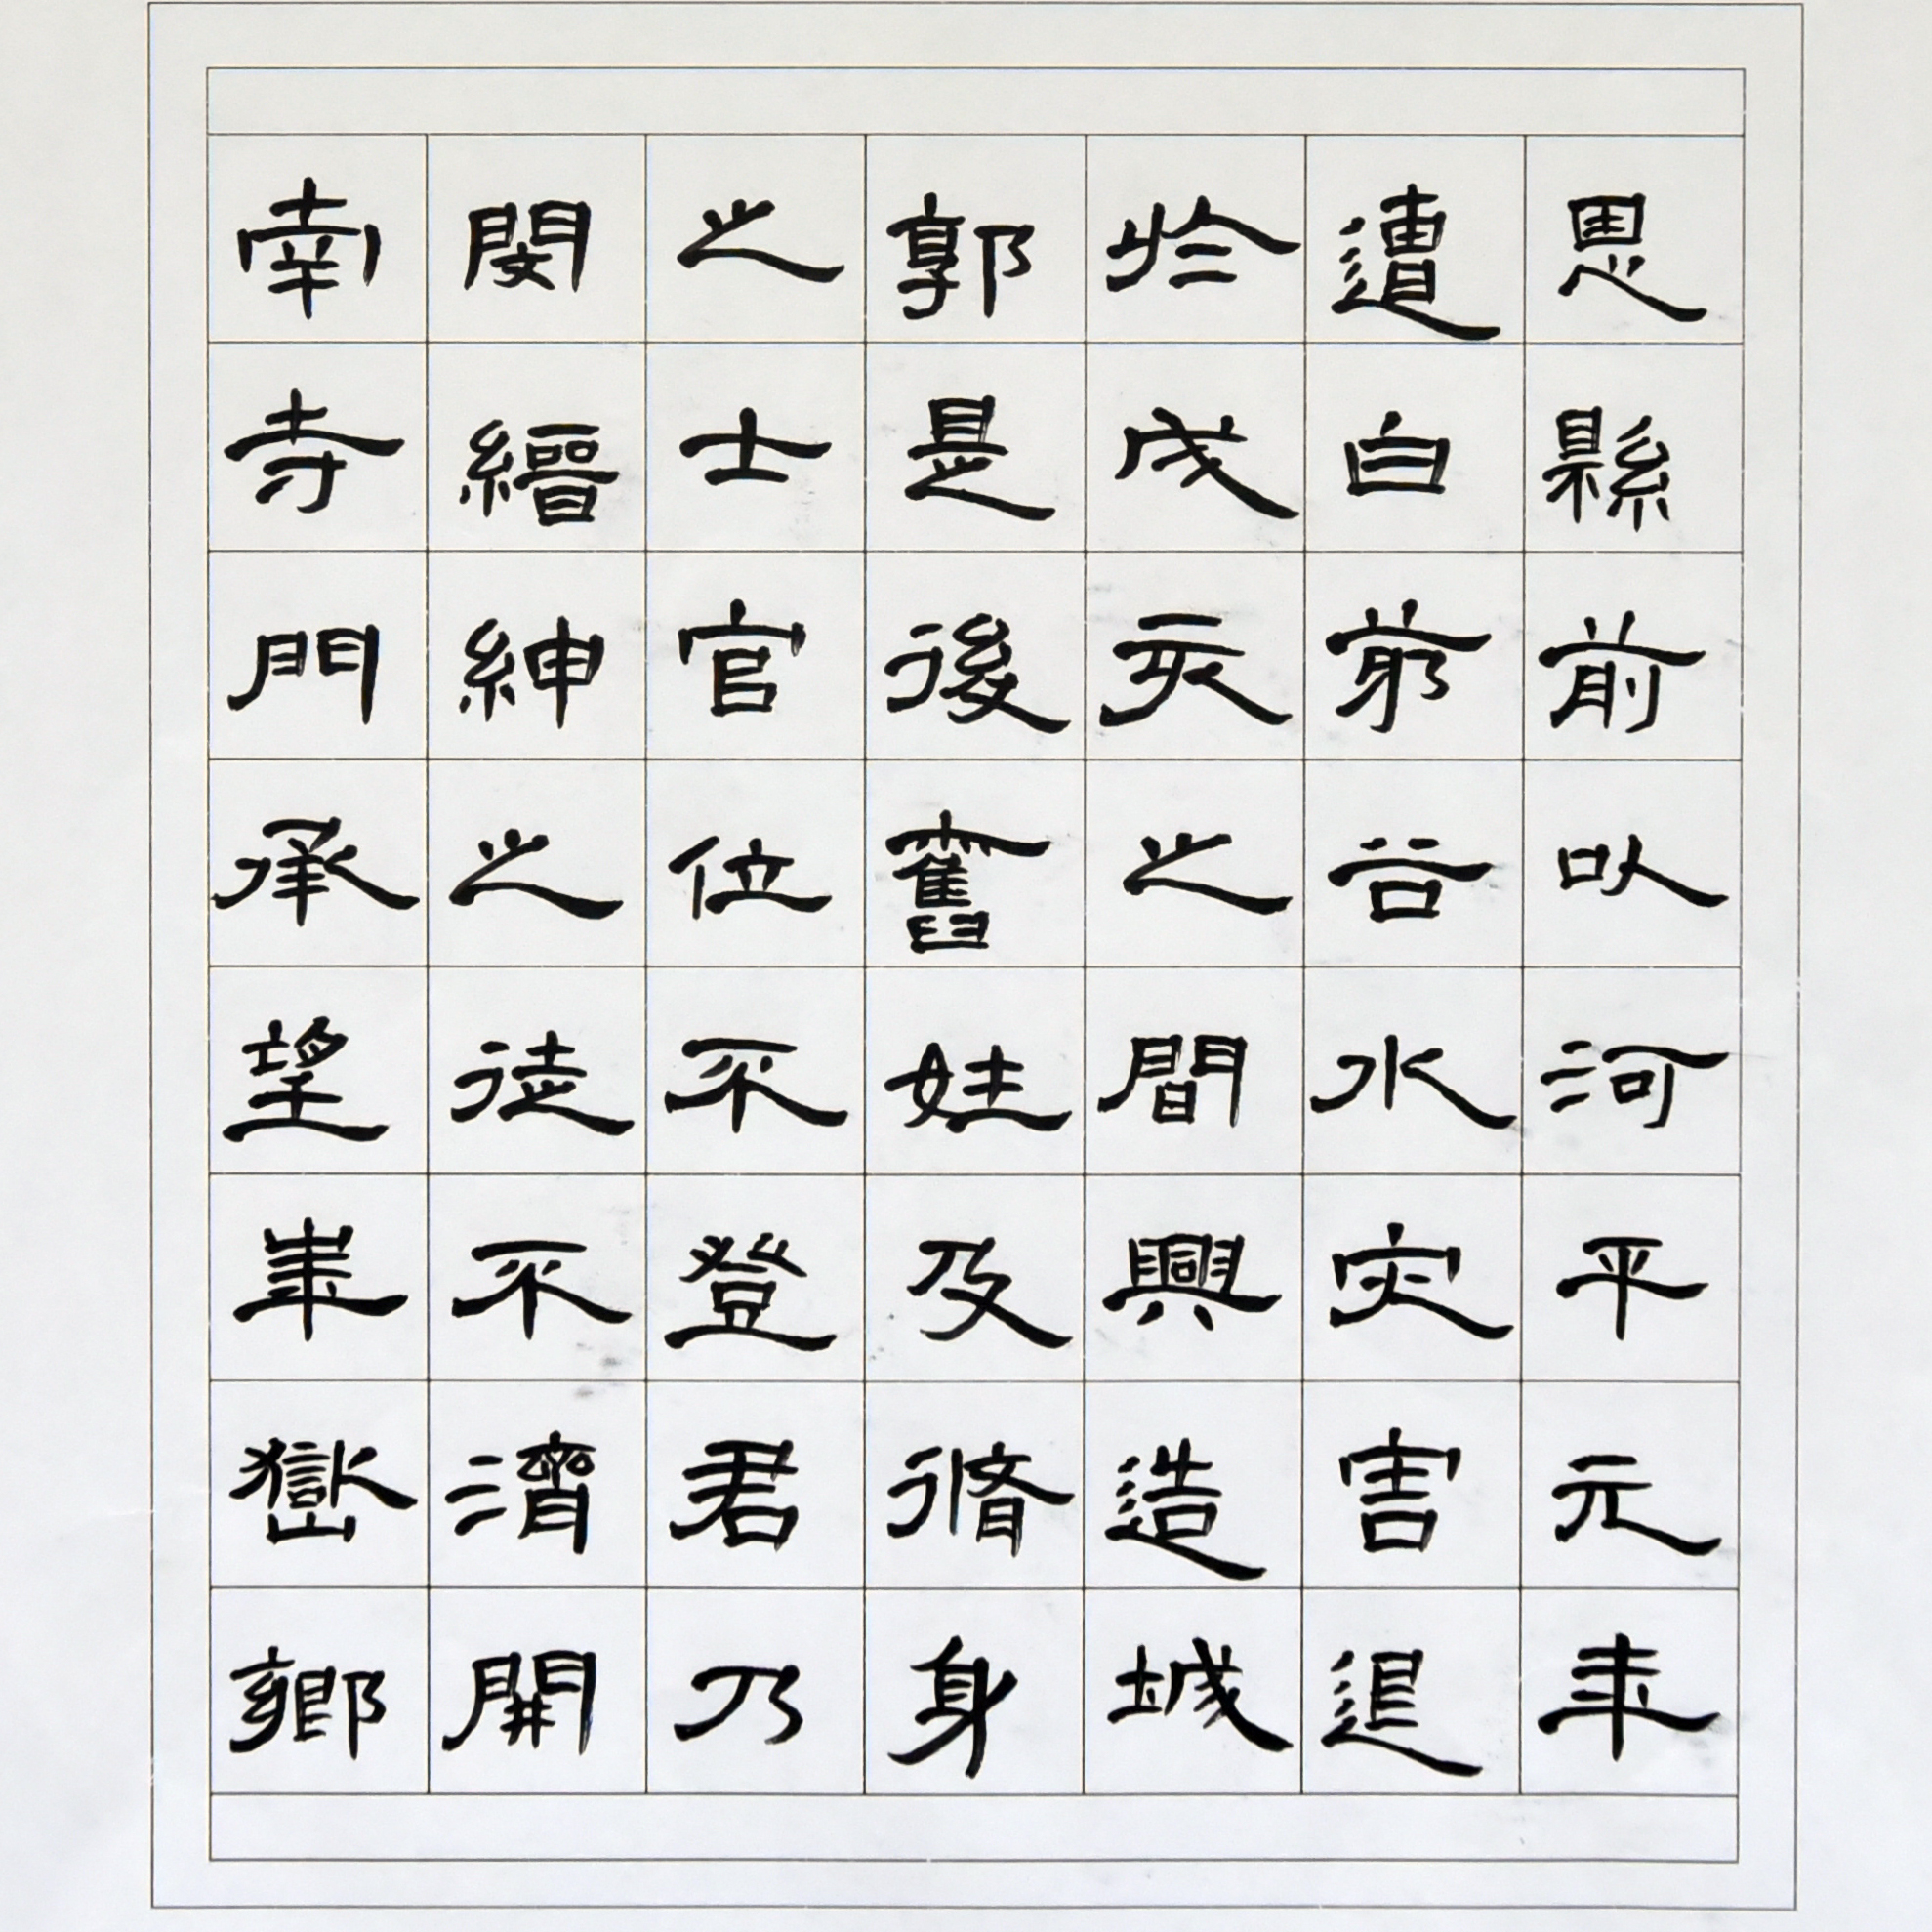 恩縣前以河平元年
遭白茅谷水灾害退
於戌亥之間興造城
郭是後舊姓及脩身
之士官位不登君乃
閔縉紳之徒不濟開
南寺門承望華嶽鄉